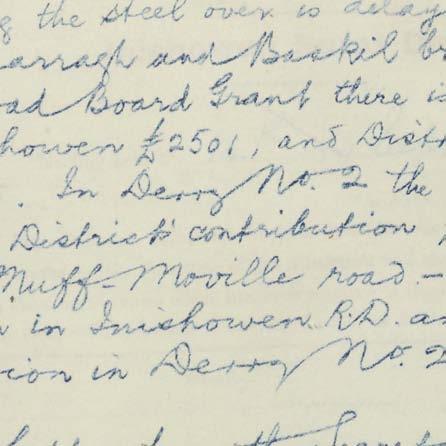 g the steel over is delay
arragh and Baskil br
oad Board Grant there i
howen £2501, and Distr
. In Derry No. 2 the
District contribution
Muff-Moville road.-
in Inishowen R.D. a
ion in Derry No. 2